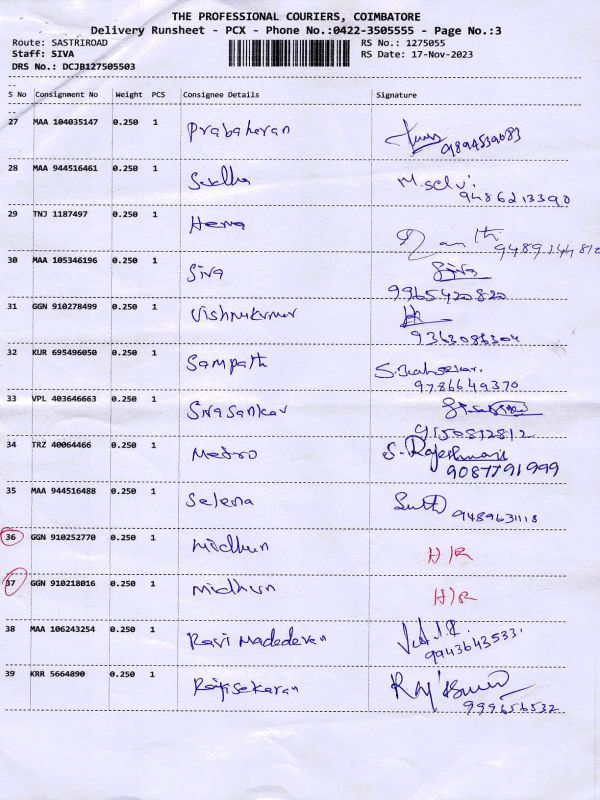 THE PROFESSIONAL COURIERS, COIMBATORE
Delivery Runsheet - PCX - Phone No.:0422-3505555 - Page No.:3
Route: SASTRIROAD RS No.: 1275055
Staff: SIVA RS Date: 17-Nov-2023
DRS No.: DCJB127505503
S No Consignment No Weight PCS Consignee Details Signature
27 MAA 104035147 0.250 1 Prabakaran
9894539683
28 MAA 944516461 0.250 1 Sudha M.selvi
9486213390
29 TNJ 1187497 0.250 1 Hema
9489144812
30 MAA 105346196 0.250 1 Siva Siva
9965420820
31 GGN 910278499 0.250 1 Vishnukumar
9363086304
32 KUR 695496050 0.250 1 Sampath
9786649370
33 VPL 403646663 0.250 1 Sivasankar
9150812812
34 TRZ 40064466 0.250 1 Metro S. Rajeshwari
9087791999
35 MAA 944516488 0.250 1 Selena
9489631118
36 GGN 910252770 0.250 1 Midhun H/R
37 GGN 910218016 0.250 1 Midhun H/R
38 MAA 106243254 0.250 1 Ravi Madadevan
9943643533.
39 KRR 5664890 0.250 1 Rajasekaran
999656532